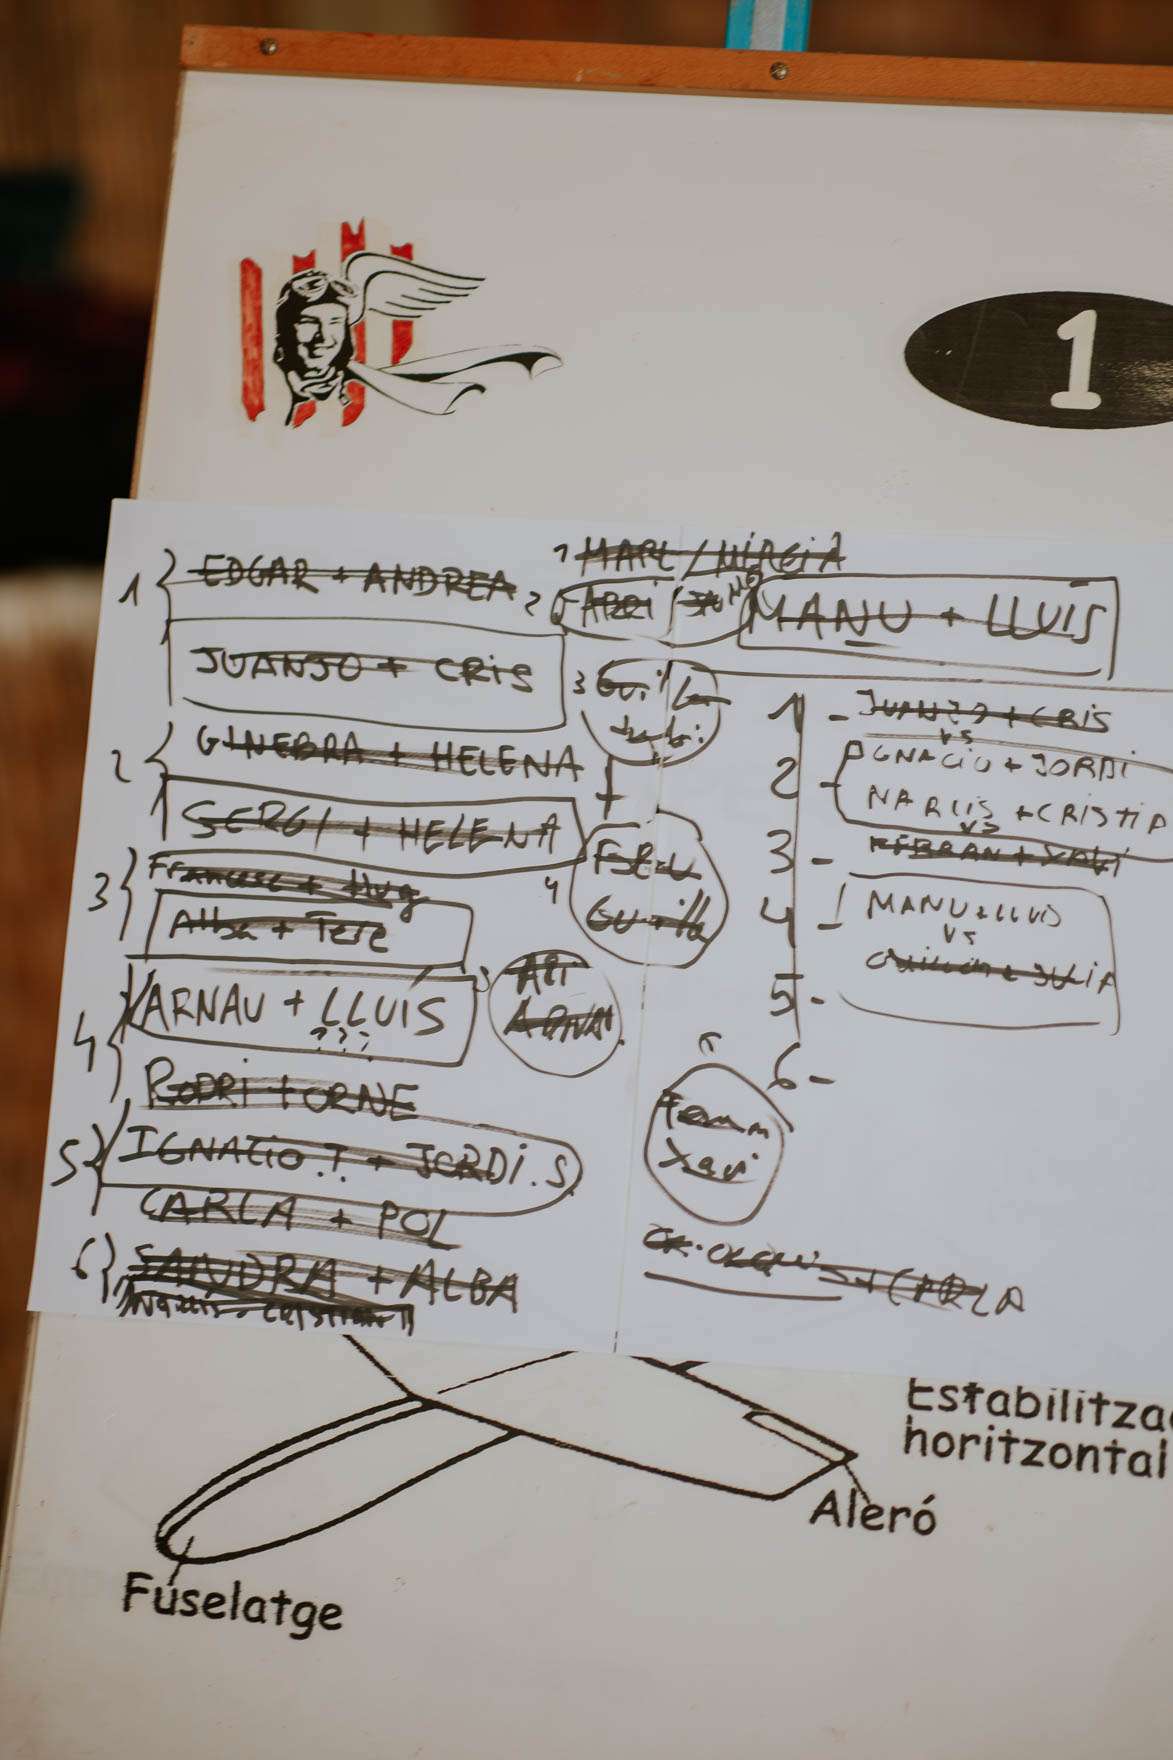 1
1 EDGAR + ANDREA
JUANJO + CRIS
2 GINEBRA + HELENA
SERGI + HELENA
3 Francesc + Hug
Alba + Tere
4 ARNAU + LLUÍS
???
RODRI + ORNE
5 IGNACIO.T. + JORDI.S
CARLA + POL
6 SANDRA + ALBA
NARCIS + CRISTIAN
1 MARC / MIREIA
2
MANU + LLUÍS
3 Guille
+
4
5 ARI
ARNAU
6
Xavi
+ CARLA
1 - JUANJO + CRIS
vs
2 - IGNACIO + JORDI
NARCIS + CRISTIA
vs
3 - FERRAN + XAVI
4 - MANU + LLUIS
vs
+ JULIA
5 -
6 -
Estabilitza
horitzontal
Aleró
Fuselatge